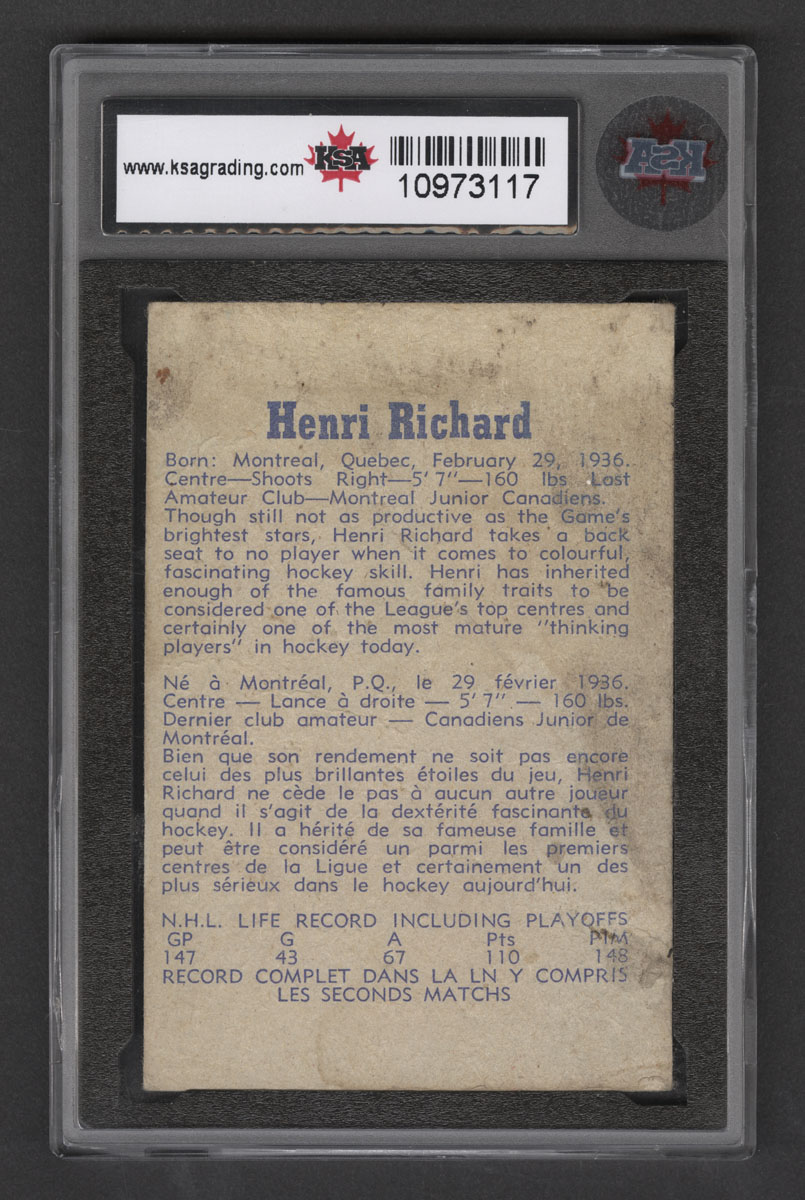 www.ksagrading.com KSA
10973117
KSA
Henri Richard
Born: Montreal, Quebec, February 29, 1936.
Centre—Shoots Right—5' 7"—160 lbs Last
Amateur Club—Montreal Junior Canadiens.
Though still not as productive as the Game's
brightest stars, Henri Richard takes a back
seat to no player when it comes to colourful,
fascinating hockey skill. Henri has inherited
enough of the famous family traits to be
considered one of the League's top centres and
certainly one of the most mature "thinking
players" in hockey today.
Né à Montréal, P.Q., le 29 février 1936.
Centre — Lance à droite — 5' 7" — 160 lbs.
Dernier club amateur — Canadiens Junior de
Montréal.
Bien que son rendement ne soit pas encore
celui des plus brillantes étoiles du jeu, Henri
Richard ne cède le pas à aucun autre joueur
quand il s'agit de la dextérité fascinante du
hockey. Il a hérité de sa fameuse famille et
peut être considéré un parmi les premiers
centres de la Ligue et certainement un des
plus sérieux dans le hockey aujourd'hui.
N.H.L. LIFE RECORD INCLUDING PLAYOFFS
GP G A Pts PIM
147 43 67 110 148
RECORD COMPLET DANS LA LN Y COMPRIS
LES SECONDS MATCHS